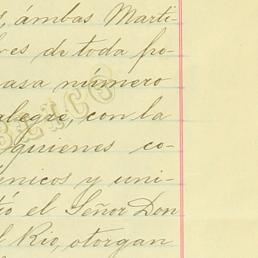 , ámbas Marti-
res de toda po-
asa número
alegre, con la
quienes co-
énicos y uni-
tió el Señor Don
l Rio, otorgan